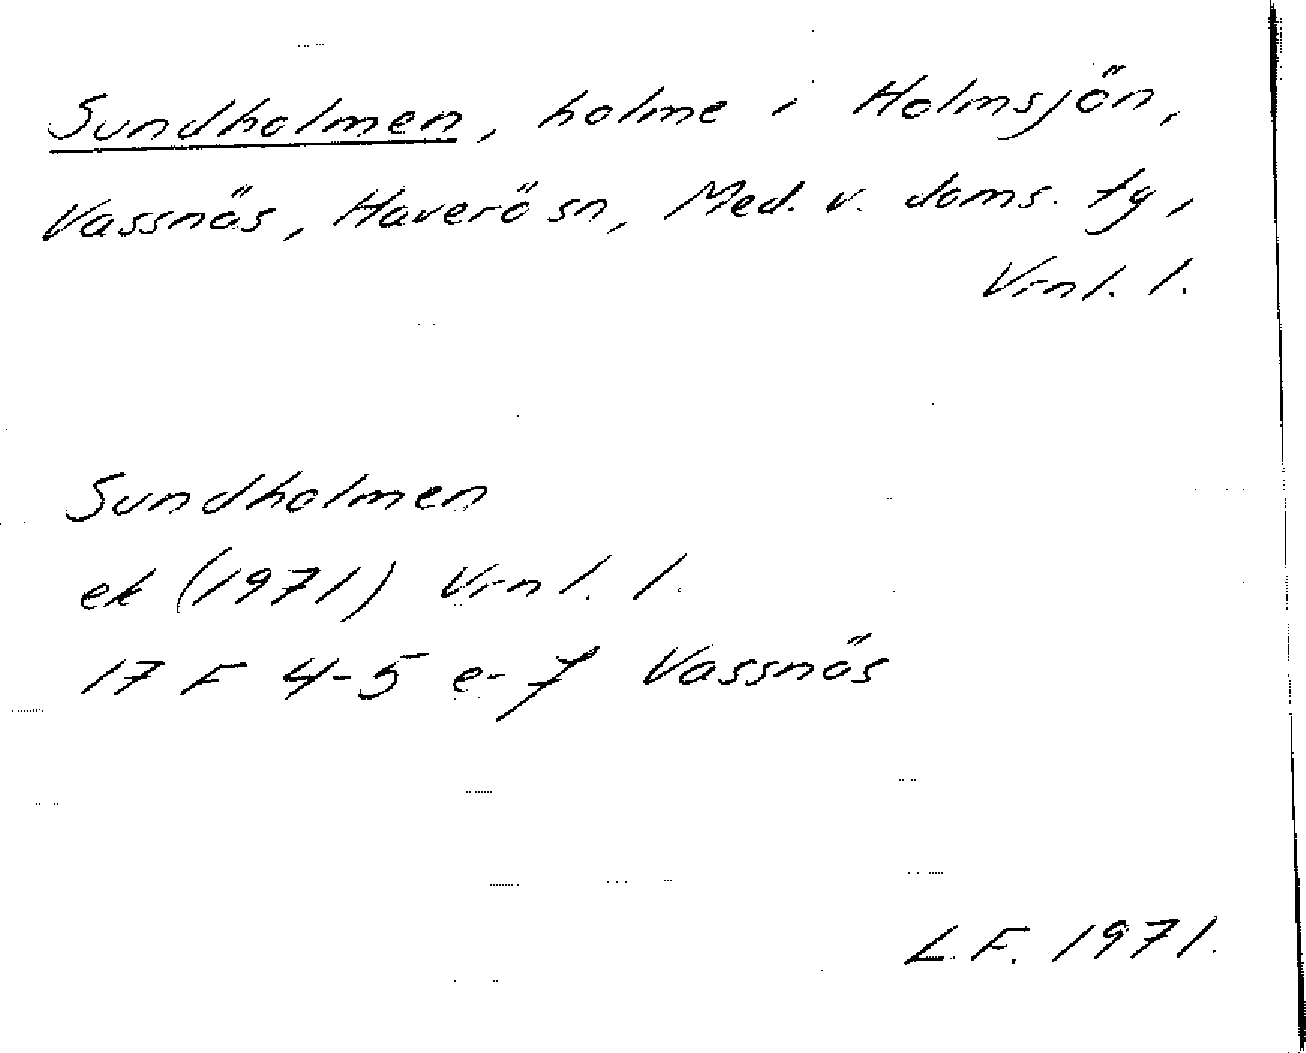 Sundholmen, holme i Holmsjön,
Vassnäs, Haverö sn, Med. v. doms. fg,
Vrnl. l.
Sundholmen
ek (1971) Vrnl. l.
17 F 4-5 e-f Vassnäs
L.F. 1971.